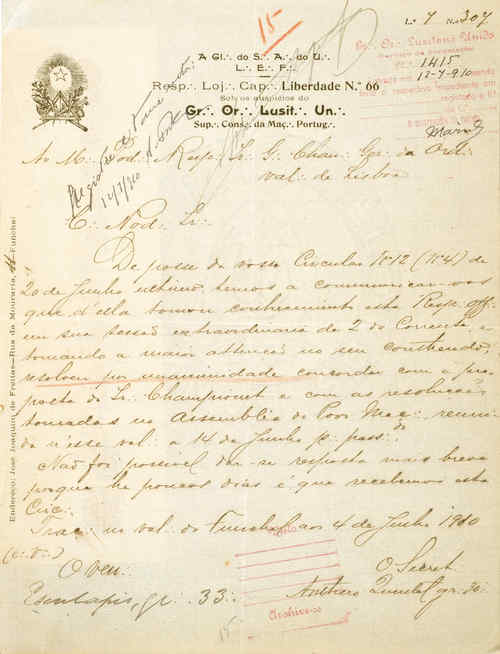 L.º 7 N.º 307
15
A Gl∴ do S∴ A∴ do U∴
L∴ E∴ F∴
Resp∴ Loj∴ Cap∴ Liberdade N.º 66
Sob os auspicios do
Gr∴ Or∴ Lusit∴ Un∴
Sup∴ Cons∴ da Maç∴ Portug∴
Gr∴ Or∴ Lusitano Unido
N.º 1415
12-7-910
12/7/910
Ao M∴ Pod∴ Resp∴ Ir∴ G∴ Chan∴ Ger∴ da Ord∴
Val∴ de Lisboa
C∴ Pod∴ Ir∴
De posse da vossa Circular Nº 12 (Nº 4) de
20 de Junho ultimo, temos a communicar-vos
que d'ella tomou conhecimento esta Resp∴ Off∴
em sua sessão extraordinaria de 2 do Corrente, e
tomando a maior attenção no seu contheudo,
resolveu por unanimidade concordar com a pro-
posta do Ir∴ Championet e com as resoluções
tomadas na Assembleia do Pov∴ Maç∴ reuni-
da n'esse val∴ a 14 de Junho p. pass.do
Não foi possivel dar-se resposta mais breve
porque ha poucos dias é que recebemos esta
Circ∴
Traç∴ no val∴ do Funchal aos 4 de Julho 1910
(e∴ v∴)
O Ven∴
O Secret∴
Esculapio, gr∴ 33∴
Anthero Quental gr∴ 30∴
Archive-se
15
Endereço: José Joaquim de Freitas—Rua da Mouraria, Funchal